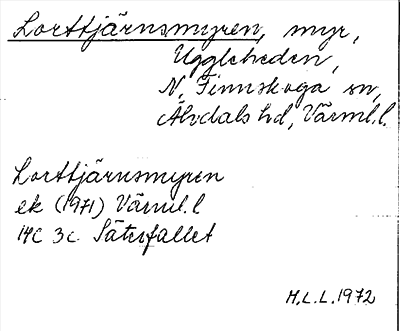 Lorttjärnsmyren, myr,
Uggleheden,
N. Finnskoga sn,
Älvdals hd, Värml. l.
Lorttjärnsmyren
ek (1971) Värml. l
14C 3c Säterfallet
H.L.L. 1972